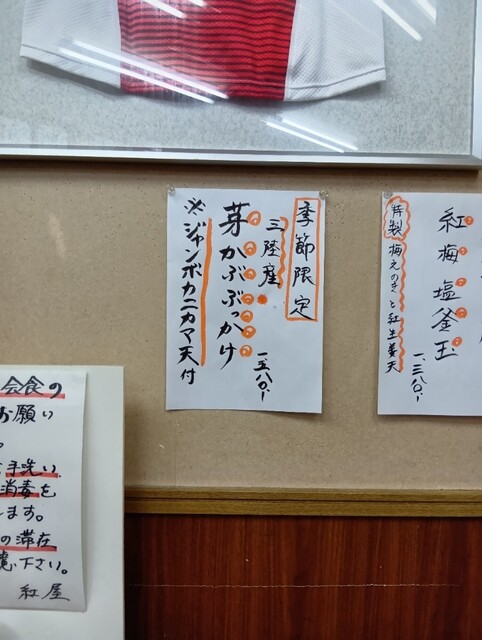 季節限定
三陸産
芽かぶぶっかけ
一、五八〇.-
※ジャンボカニカマ天付
紅梅塩釜玉
特製梅えのきと紅生姜天
一、三八〇.-
会食の
お願い
手洗い、
消毒を
します。
の滞在
慮下さい。
紅屋